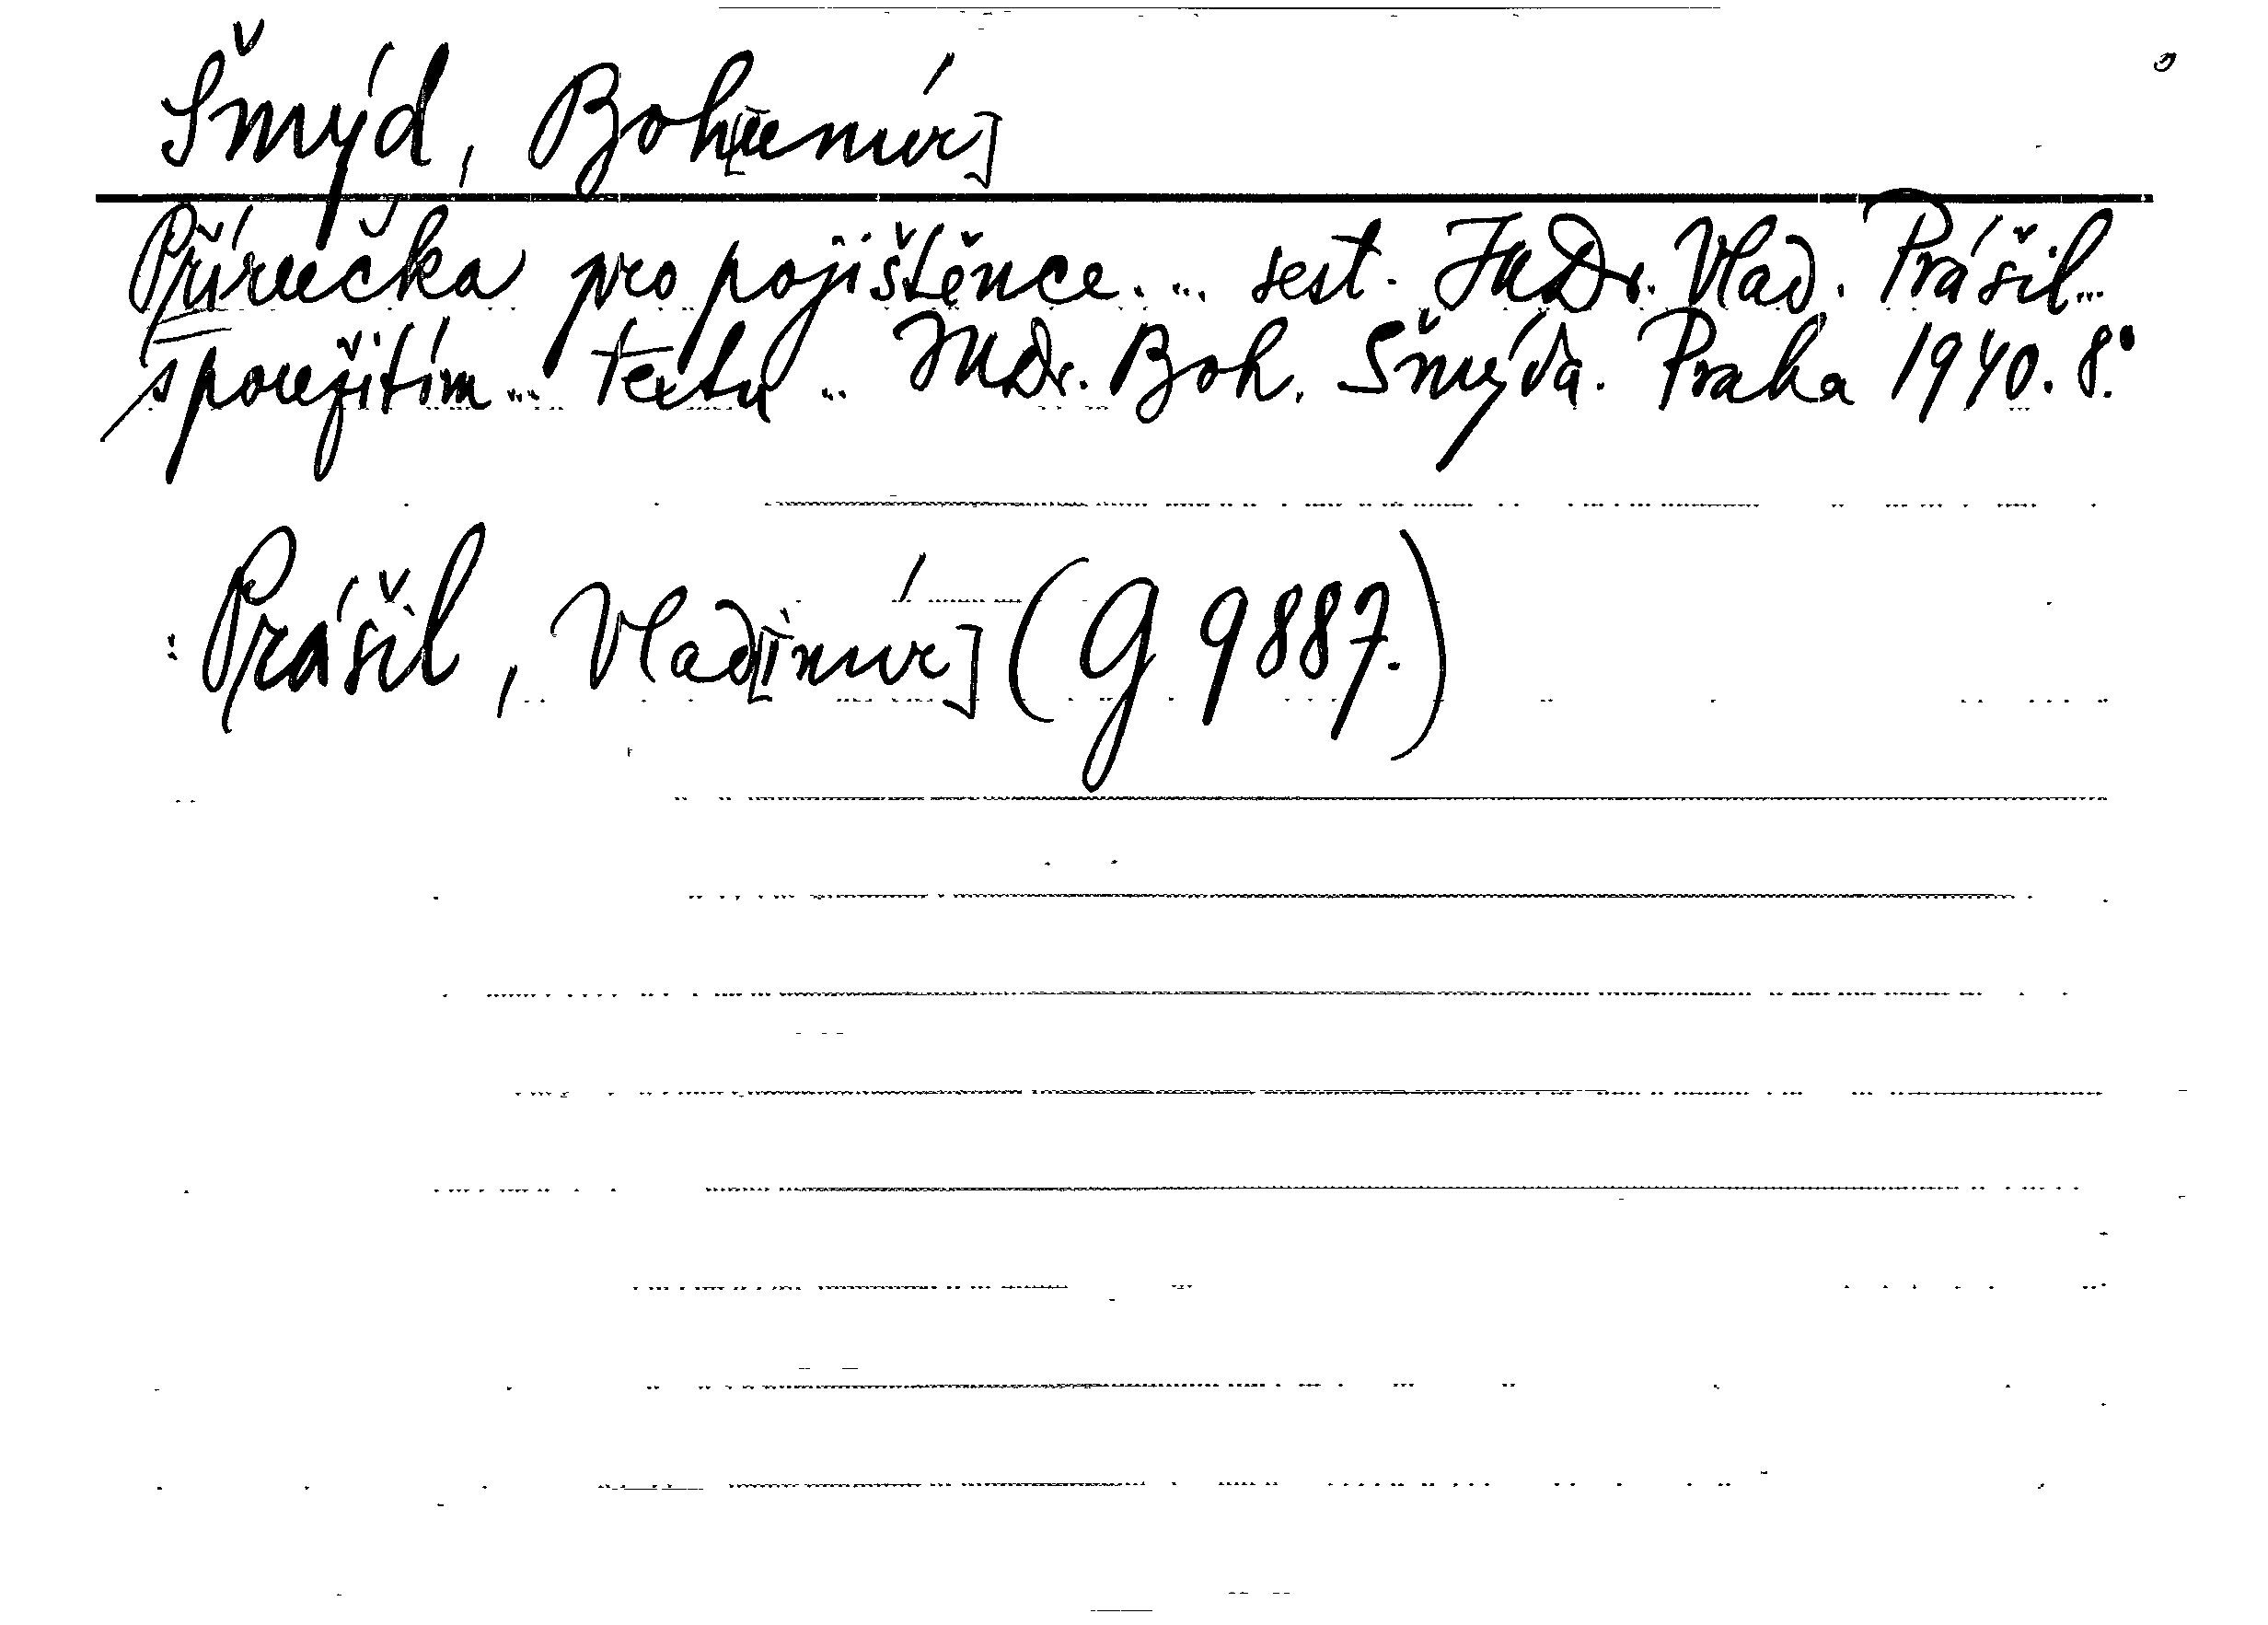 Šmýd, Boh[umír]
Příručka pro pojištěnce. ... sest. JUDr. Vlad. Prášil ...
s použitím ... textu ... JUDr. Boh. Šmýda. Praha 1940. 8°.
: Prášil, Vlad[imír] (G 9887.)